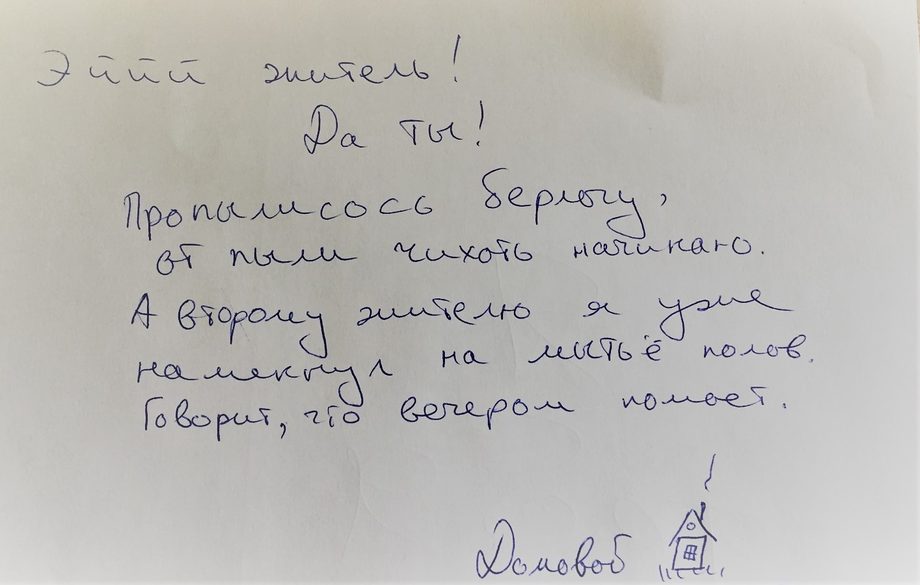 Эййй житель!
Да ты!
Пропылисось берлогу,
от пыли чихоть начинаю.
А второму жителю я уже
намекнул на мытьё полов.
Говорит, что вечером помоет.
Домовой